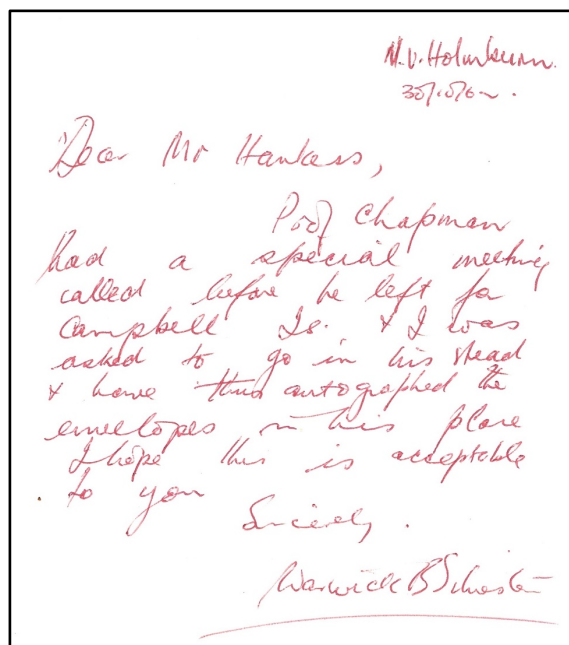 M.V. Holmburn.
Dear Mr Hawkess,
Prof Chapman
had a special meeting
called before he left for
Campbell Is. & I was
asked to go in his stead
& have thus autographed the
envelopes in his place
I hope this is acceptable
to you
Sincerely.
Warwick B Silvester